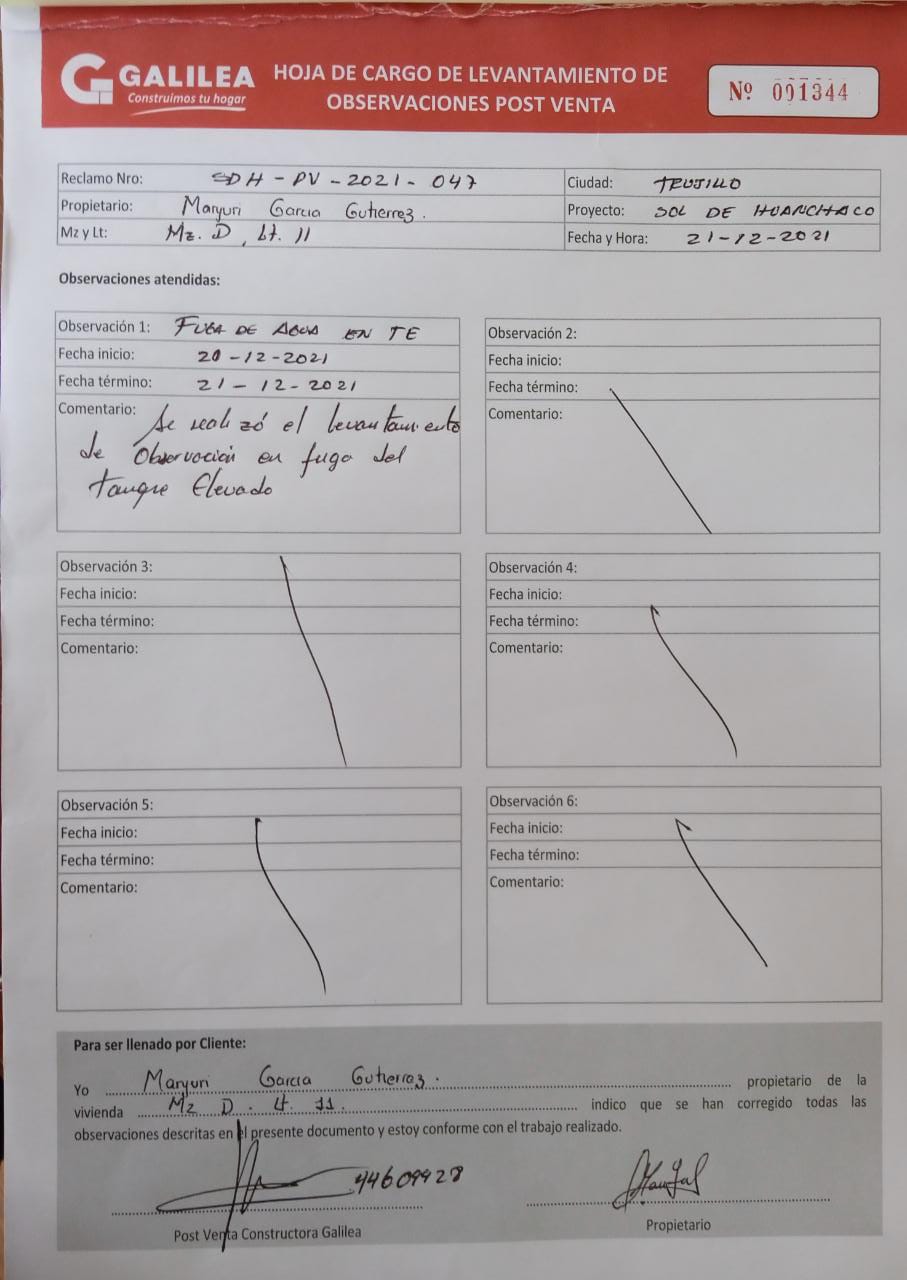 GALILEA
Construimos tu hogar
HOJA DE CARGO DE LEVANTAMIENTO DE
OBSERVACIONES POST VENTA
Nº 001344
Reclamo Nro: SDH - PV - 2021 - 047
Ciudad: TRUJILLO
Propietario: Maryuri Garcia Gutierrez.
Proyecto: SOL DE HUANCHACO
Mz y Lt: Mz. D, Lt. 11
Fecha y Hora: 21-12-2021
Observaciones atendidas:
Observación 1: FUGA DE AGUA EN TE
Fecha inicio: 20-12-2021
Fecha término: 21-12-2021
Comentario: Se realizó el levantamiento
de Observación en fuga del
tanque Elevado
Observación 2:
Fecha inicio:
Fecha término:
Comentario:
Observación 3:
Fecha inicio:
Fecha término:
Comentario:
Observación 4:
Fecha inicio:
Fecha término:
Comentario:
Observación 5:
Fecha inicio:
Fecha término:
Comentario:
Observación 6:
Fecha inicio:
Fecha término:
Comentario:
Para ser llenado por Cliente:
Yo Maryuri Garcia Gutierrez. propietario de la
vivienda Mz D. Lt. 11. indico que se han corregido todas las
observaciones descritas en el presente documento y estoy conforme con el trabajo realizado.
44609928
Post Venta Constructora Galilea
Propietario